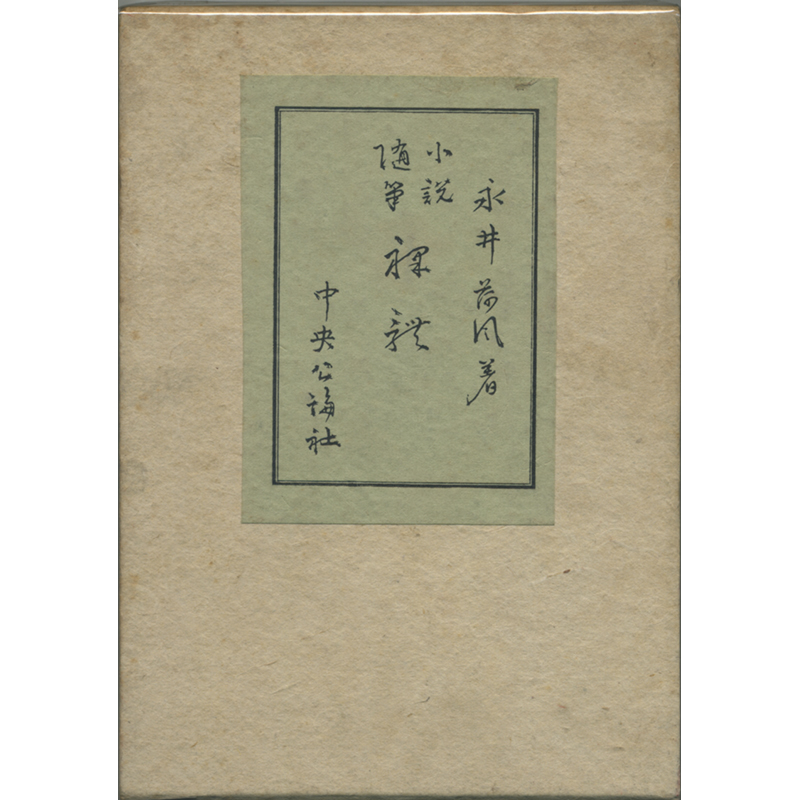 永井荷風著
小説
随筆
裸體
中央公論社